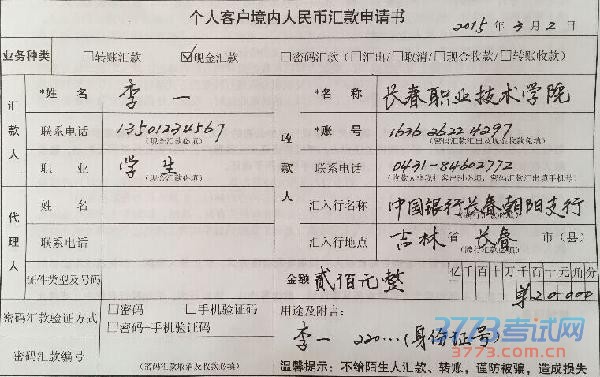 个人客户境内人民币汇款申请书
2015年3月2日
业务种类 □转账汇款 ☑现金汇款 □密码汇款（□汇出/□取消/□现金收款/□转账收款）
汇款人 *姓 名 李一 收款人 *名 称 长春职业技术学院
联系电话 13501234567 *账 号 1636 2622 4297
(现金汇款必填) (密码汇款汇出及现金收款免填)
职 业 学生 联系电话 0431-84602772
(现金汇款必填)
代理人 姓 名 汇入行名称 中国银行长春朝阳支行
联系电话 汇入行地点 吉林省 长春 市（县）
证件类型及号码 金额 贰佰元整 亿千百十万千百十元角分
¥20000
密码汇款验证方式 □密码 □手机验证码 用途及附言：
□密码+手机验证码 李一 220……(身份证号)
3773考试网
3773.com.cn
密码汇款编号 (密码汇款取消及收款必填) 温馨提示：不给陌生人汇款、转账，谨防被骗，造成损失